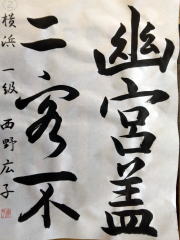 幽宮蓋
二客不
横浜 一級 西野広子